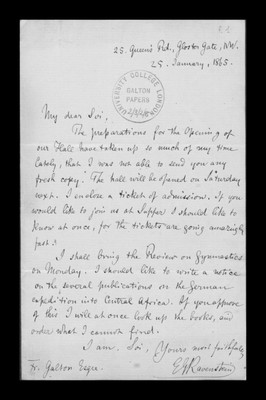 25. Queen's Rd., Gloster Gate, N.W.
25. January, 1865.
UNIVERSITY COLLEGE LONDON
GALTON PAPERS
My dear Sir,
The preparations for the opening of
our Hall have taken up so much of my time
lately, that I was not able to send you any
fresh copy. The hall will be opened on Saturday
next. I enclose a ticket of admission. If you
would like to join us at Supper I should like to
know at once, for the tickets are going amazingly
fast.
I shall bring the Review on Gymnastics
on Monday. I should like to write a notice
on the several publications on the German
expedition into Central Africa. If you approve
of this I will at once look up the books, and
order what I cannot find.
I am, Sir, Yours most faithfully,
Fr. Galton Esqre. EGRavenstein